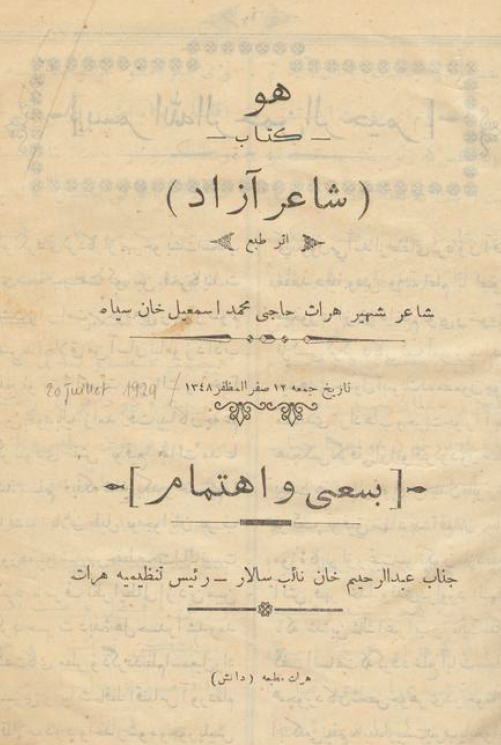 هو
ـ کتاب ـ
( شاعر آزاد )
اثر طبع
شاعر شهیر هرات حاجی محمد اسمعیل خان سیاه
تاریخ جمعه ۱۲ صفر المظفر ۱۳٤۸
20 Juillet 1929
[ بسعی و اهتمام ]
جناب عبدالرحیم خان نائب سالار ـ رئیس تنظیمیه هرات
هرات مطبعه (دانش)